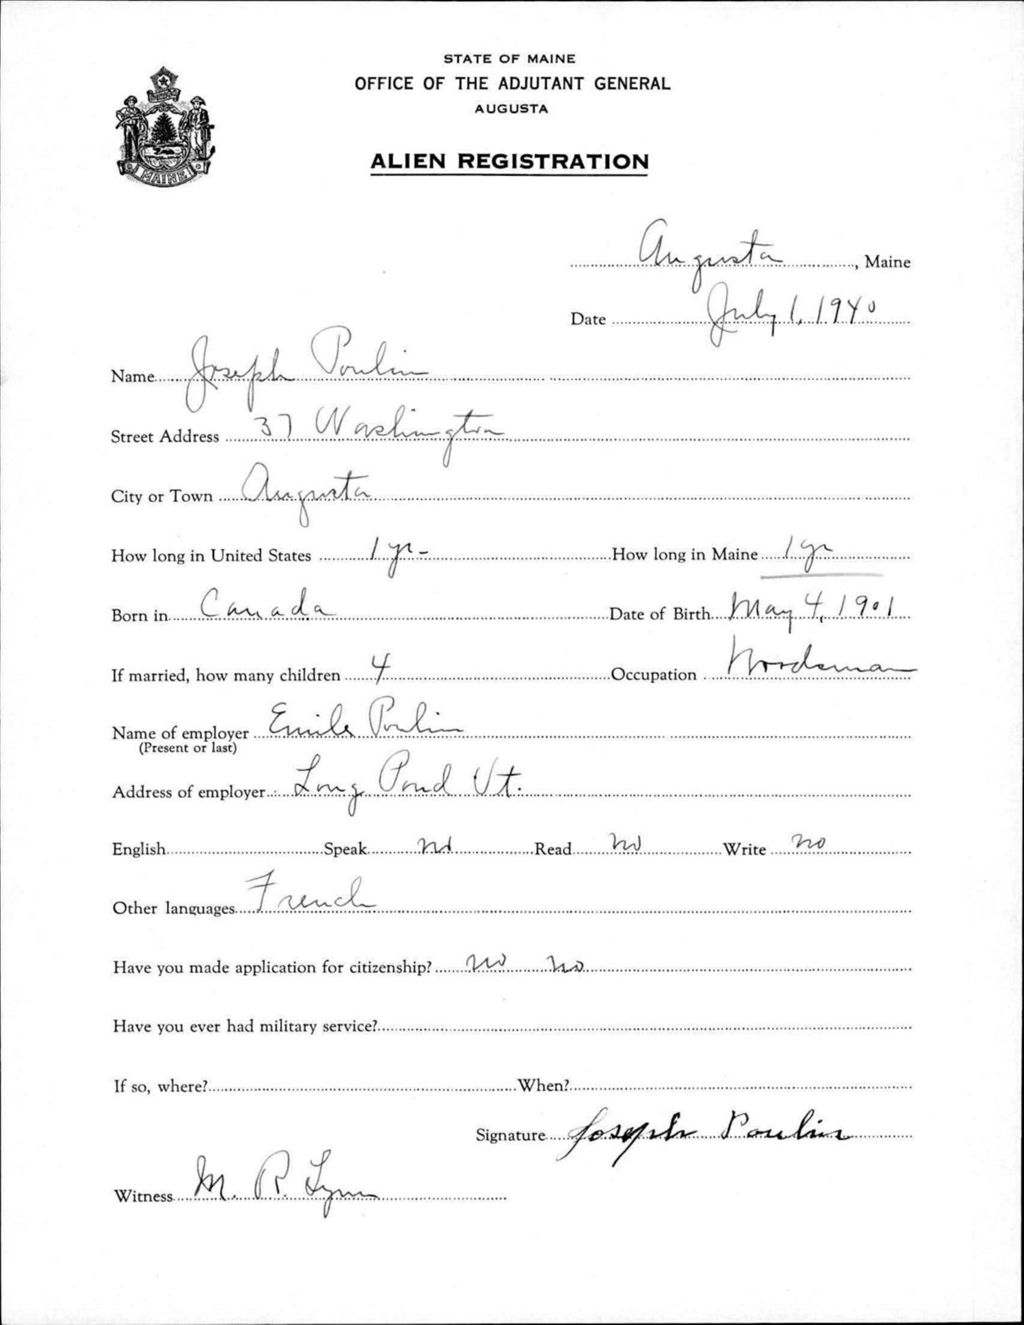 STATE OF MAINE
OFFICE OF THE ADJUTANT GENERAL
AUGUSTA
ALIEN REGISTRATION
MAINE
Augusta, Maine
Date July 1, 1940
Name Joseph Poulin
Street Address 37 Washington
City or Town Augusta
How long in United States 1 yr- How long in Maine 1 yr
Born in Canada Date of Birth May 4, 1901
If married, how many children 4 Occupation Woodsman
Name of employer Emile Poulin
(Present or last)
Address of employer Long Pond Vt.
English Speak no Read no Write no
Other languages French
Have you made application for citizenship? no no
Have you ever had military service?
If so, where? When?
Signature Joseph Poulin
Witness M. R. Lynn